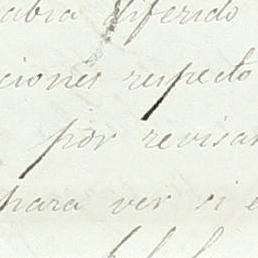 abia diferido
ciones respecto
por revisar
para ver si e